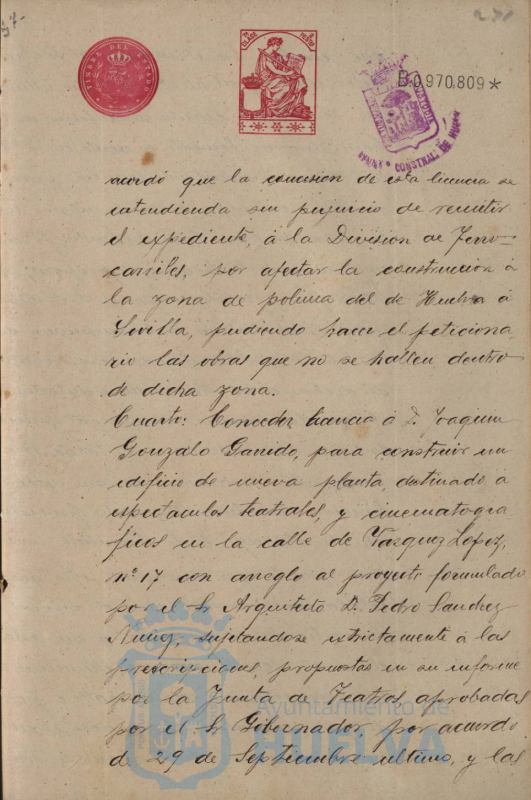 TIMBRE DEL ESTADO
B0,970,809*
acordó que la concesion de esta licencia se
entendienda sin perjuicio de remitir
el expediente, á la Division de Ferro-
carriles, por afectar la construcion á
la zona de policia del de Huelva á
Sevilla, pudiendo hacer el peticiona-
rio las obras que no se hallen dentro
de dicha zona.
Cuarto: Conceder licencia á D. Joaquin
Gonzalo Garrido, para construir un
edificio de nueva planta, destinado á
espectaculos teatrales, y cinematogra
ficos en la calle de Vazquez Lopez,
nº 17 con arreglo al proyecto formulado
por el Sr Arquitecto D. Pedro Sanchez
Nuñez, sujetandose estrictamente á las
prescripciones, propuestas en su informe
por la Junta de Teatros, aprobadas
por el Sr Gobernador, por acuerdo
de 29 de Septiembre ultimo, y las
Ayuntamiento de
HUELVA